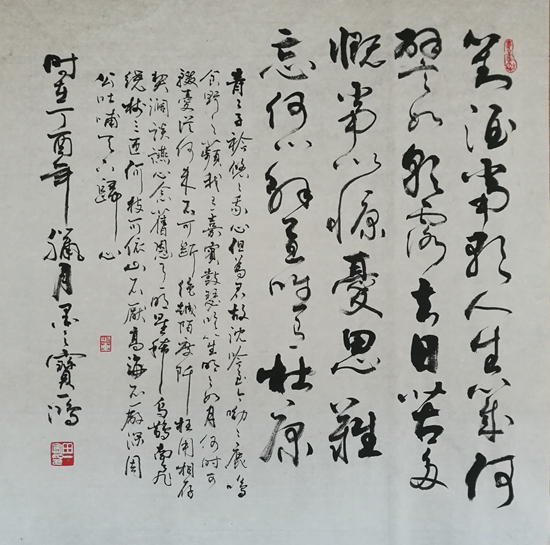 對酒當歌人生幾何
譬如朝露去日苦多
慨當以慷憂思難
忘何以解憂唯有杜康
青々子衿悠々我心但為君故沈吟至今呦々鹿鳴
食野之蘋我有嘉賓鼓瑟吹笙明々如月何時可
掇憂從何來不可斷絕越陌度阡枉用相存
契闊談讌心念舊恩月明星稀烏鵲南飛
繞樹三匝何枝可依山不厭高海不厭深周
公吐哺天下歸心
时在丁酉年臘月